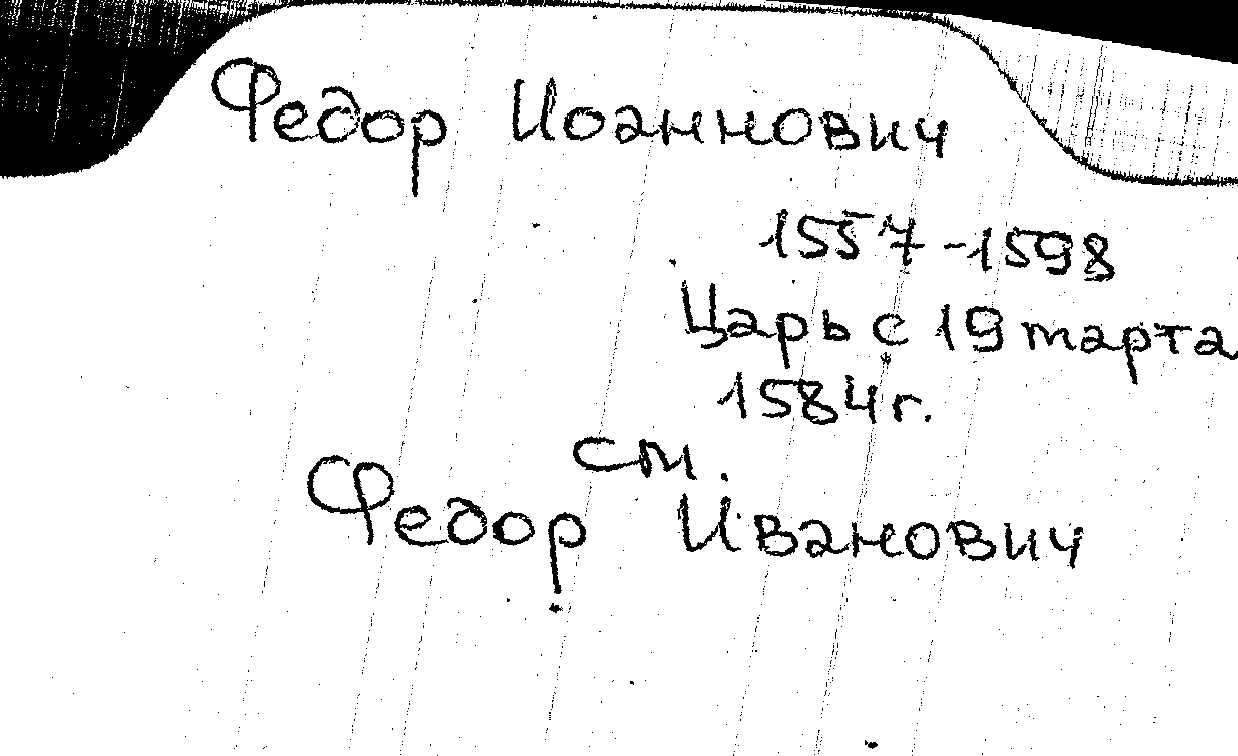 Федор Иоаннович
1557-1598
Царь с 19 марта
1584 г.
см.
Федор Иванович